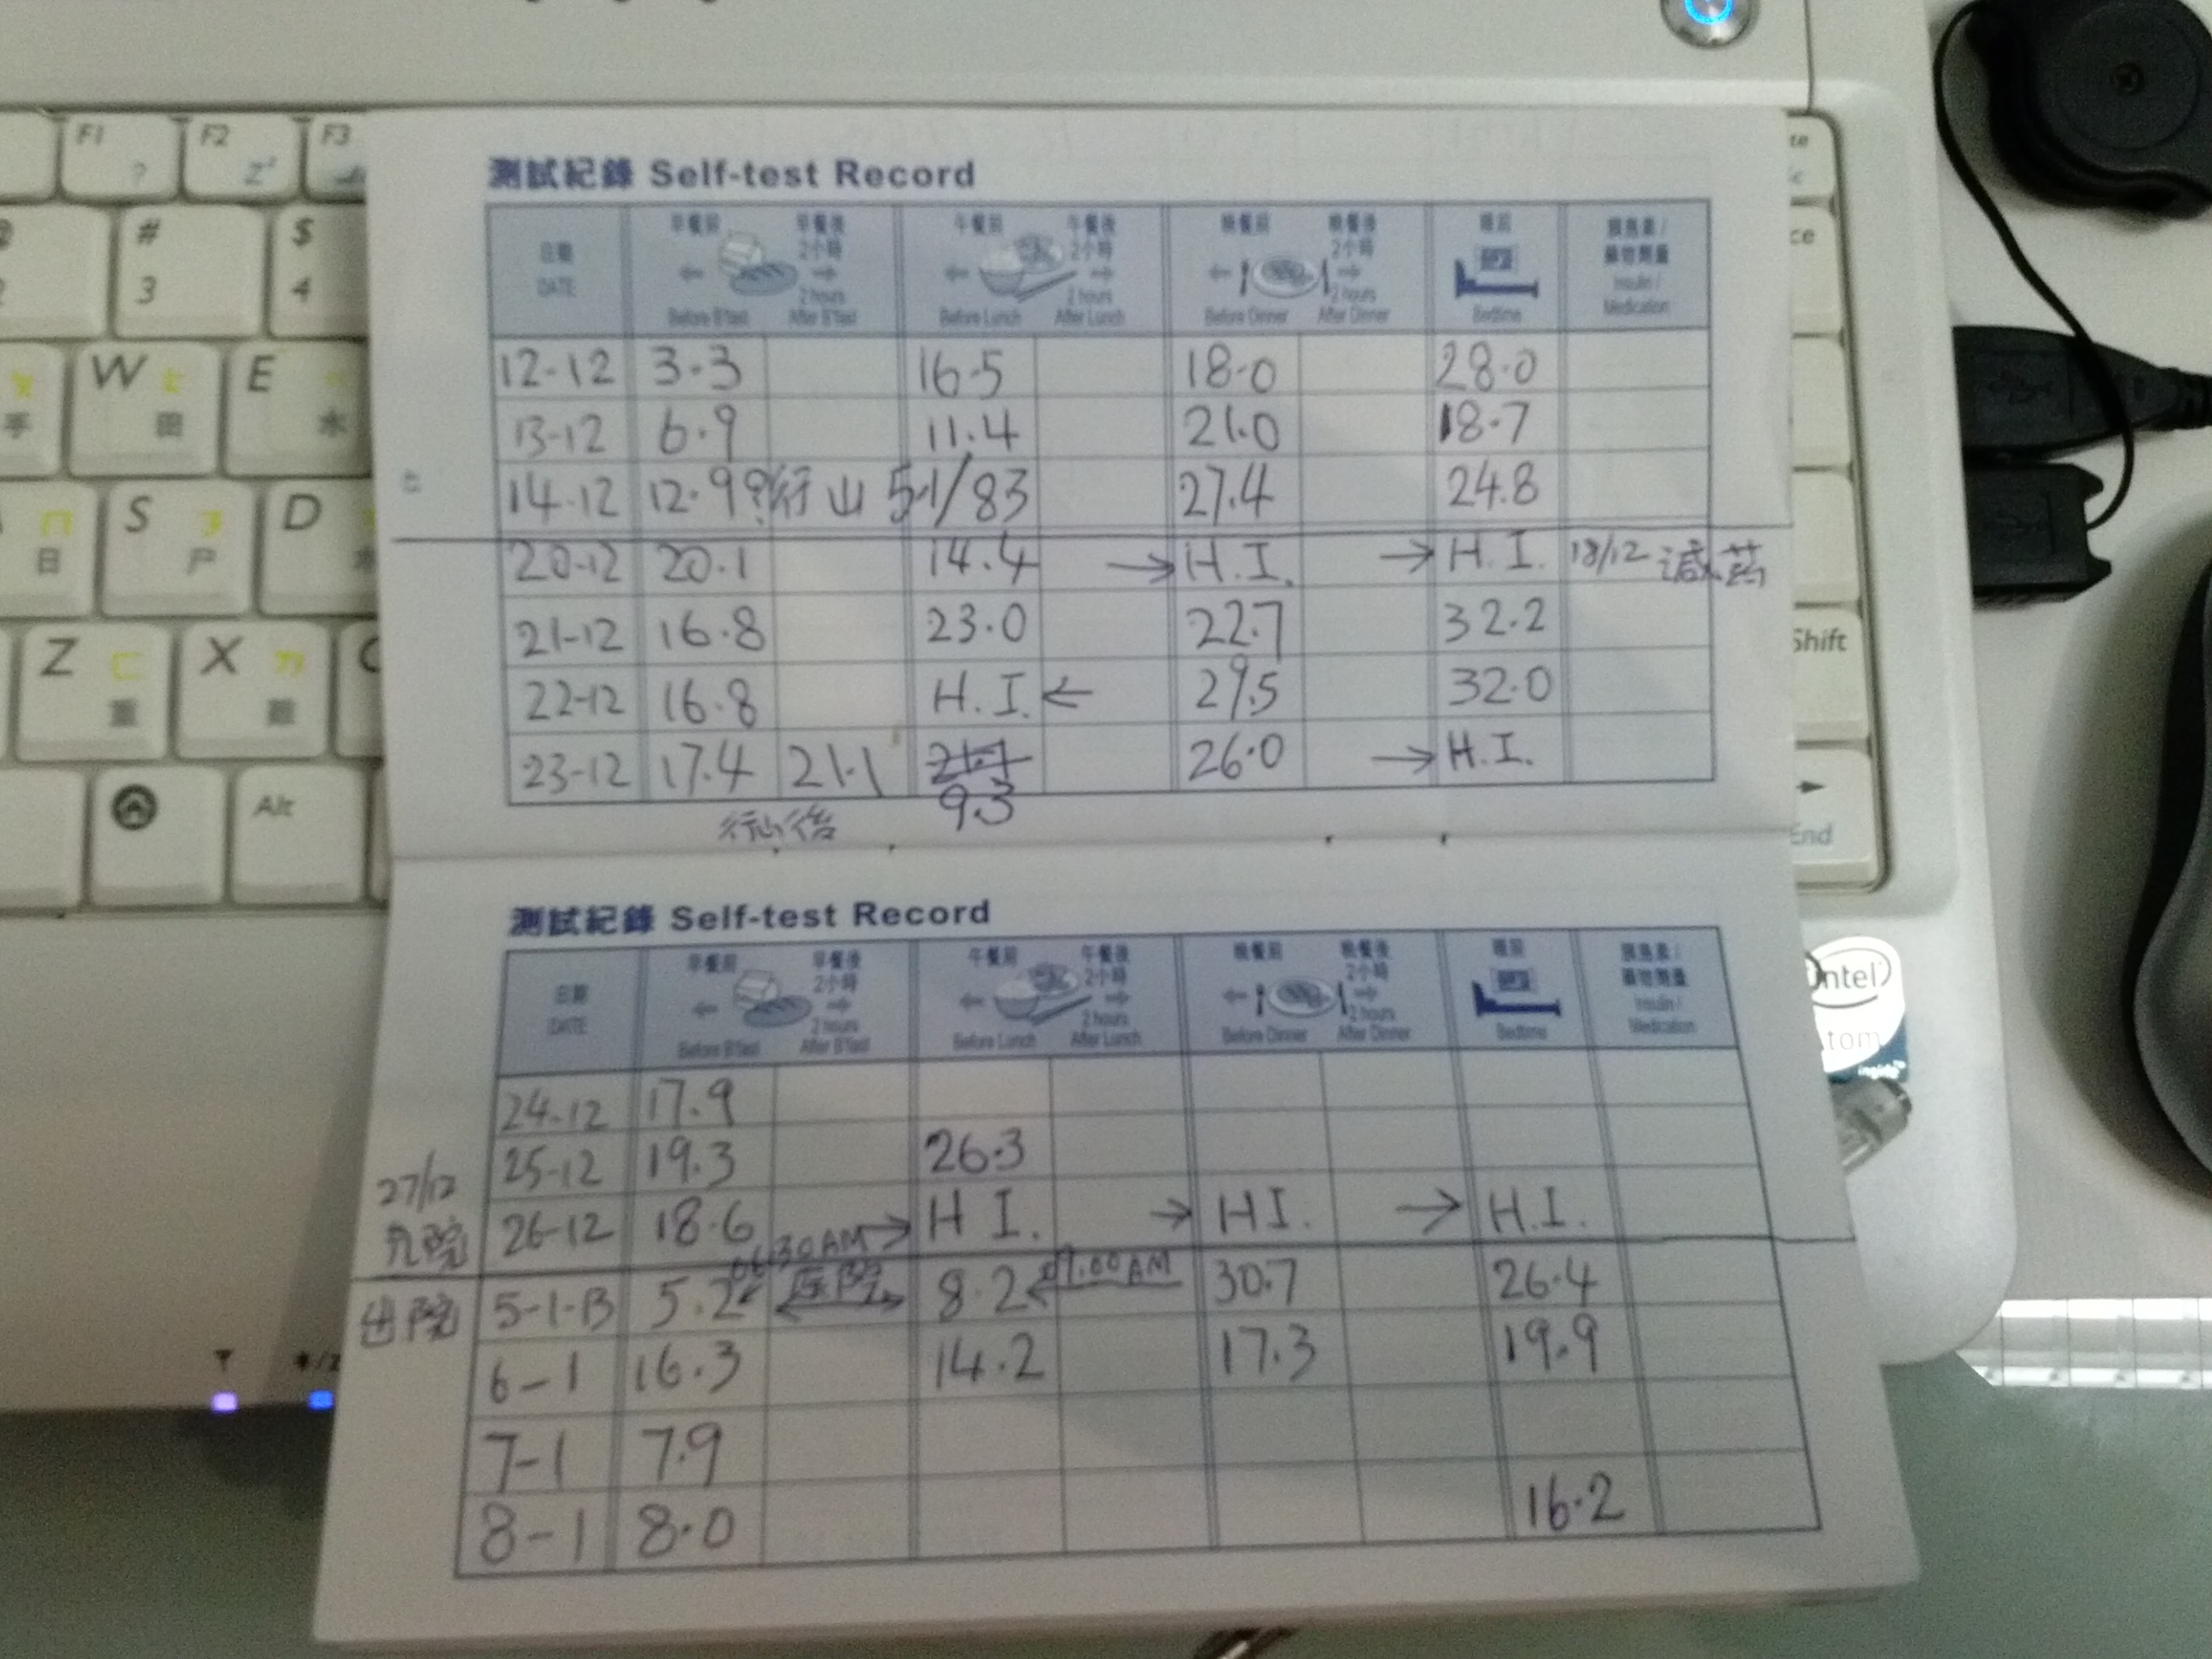 F1 F2 F3
? Z
# $
3 4
W E
田 水
手
S D
日 尸
Z X
重 難
Alt
Shift
End
測試紀錄 Self-test Record
日期 早餐前 早餐後 午餐前 午餐後 晚餐前 晚餐後 睡前 胰島素/
2小時 2小時 2小時 藥物劑量
DATE 2 hours 2 hours 2 hours Insulin/
Before B'fast After B'fast Before Lunch After Lunch Before Dinner After Dinner Bedtime Medication
12-12 3.3 16.5 18.0 28.0
13-12 6.9 11.4 21.0 18.7
14-12 12.9? 行山 5.1/83 27.4 24.8
20-12 20.1 14.4 → H.I. → H.I. 18/12 減药
21-12 16.8 23.0 22.7 32.2
22-12 16.8 H.I. ← 29.5 32.0
23-12 17.4 21.1 21.1 26.0 → H.I.
行山後 9.3
測試紀錄 Self-test Record
日期 早餐前 早餐後 午餐前 午餐後 晚餐前 晚餐後 睡前 胰島素/
2小時 2小時 2小時 藥物劑量
DATE 2 hours 2 hours 2 hours Insulin/
Before B'fast After B'fast Before Lunch After Lunch Before Dinner After Dinner Bedtime Medication
24-12 17.9
25-12 19.3 26.3
27/12
入院 26-12 18.6 → H I. → H I. → H.I.
06:30AM 09.00 AM
出院 5-1-13 5.2 医院 8.2 30.7 26.4
6-1 16.3 14.2 17.3 19.9
7-1 7.9
8-1 8.0 16.2
intel
atom
inside™